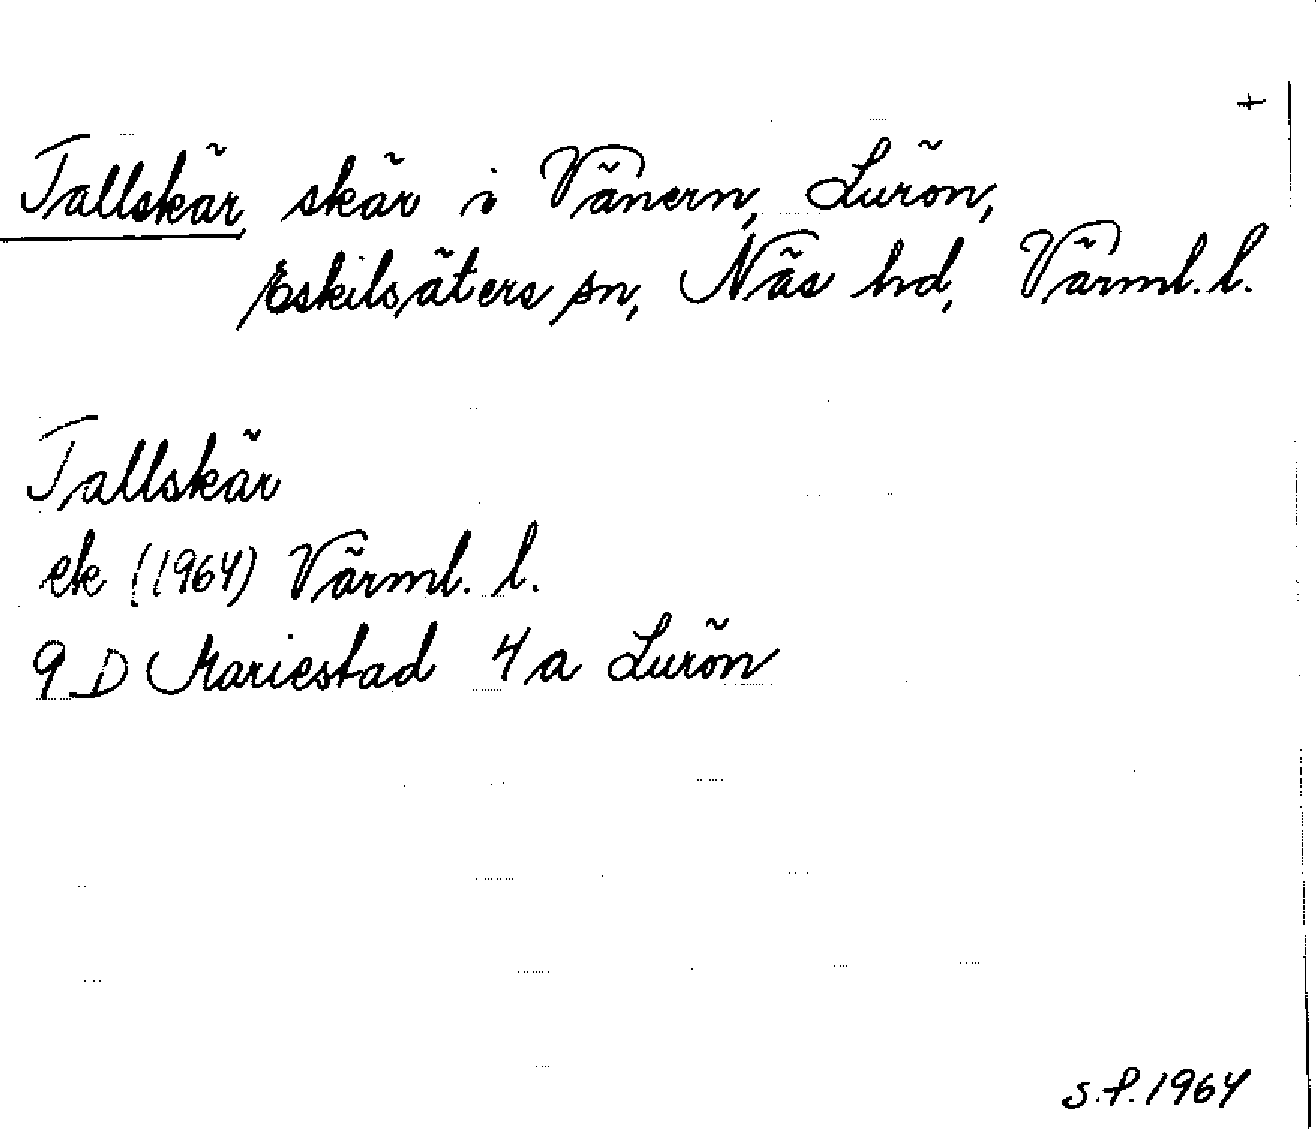 +
Tallskär, skär i Vänern, Lurön,
Eskilsäters sn, Näs hd, Värml. l.
Tallskär
ek (1964) Värml. l.
9 D Mariestad 4 a Lurön
S.P. 1964